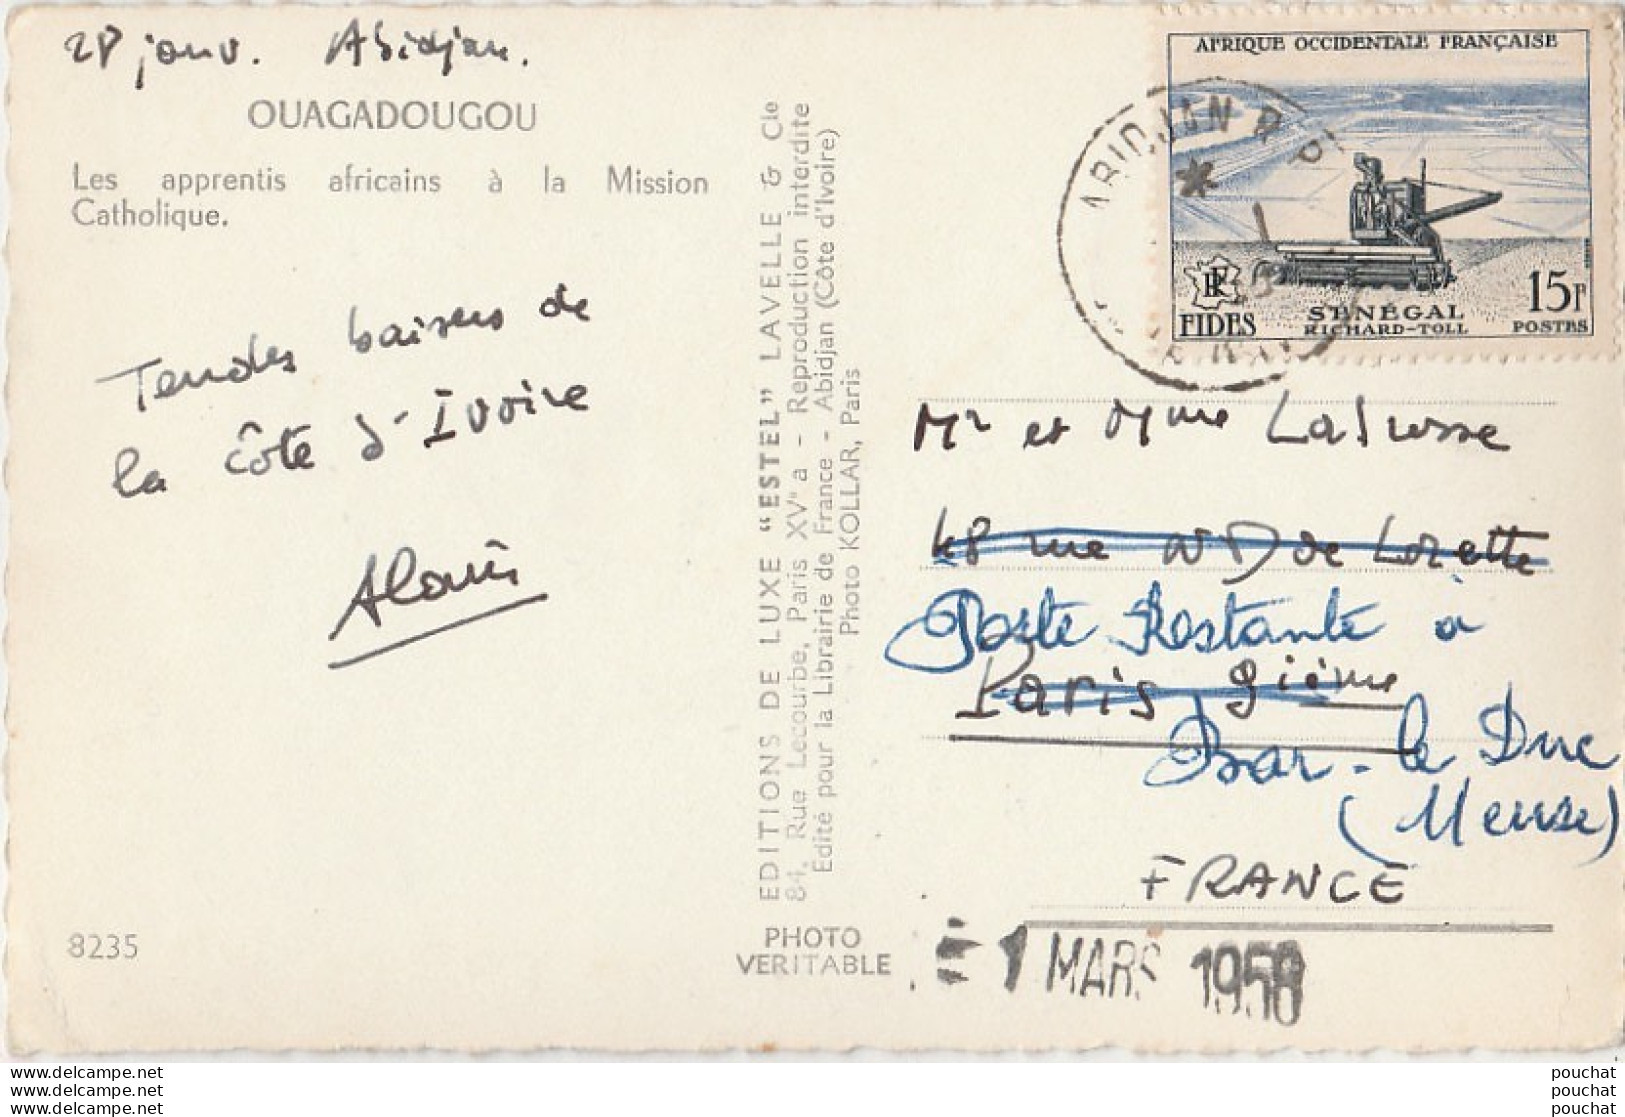 28 janv. Abidjan.
OUAGADOUGOU
Les apprentis africains à la Mission
Catholique.
Tendres baisers de
la Côte d'Ivoire
Alain
8235
EDITIONS DE LUXE "ESTEL" LAVELLE & Cie
84, Rue Lecourbe, Paris XVe - Reproduction interdite
Édité pour la Librairie de France - Abidjan (Côte d'Ivoire)
Photo KOLLAR, Paris
PHOTO
VERITABLE
AFRIQUE OCCIDENTALE FRANÇAISE
RF
FIDES
SÉNÉGAL
RICHARD-TOLL
15F
POSTES
ABIDJAN R P
Mr et Mme
48 rue ND de Lorette
Poste Restante à
Paris 9ième
Bar-le Duc
(Meuse)
FRANCE
=1 MARS 1958
www.delcampe.net
www.delcampe.net
www.delcampe.net
pouchat
pouchat
pouchat